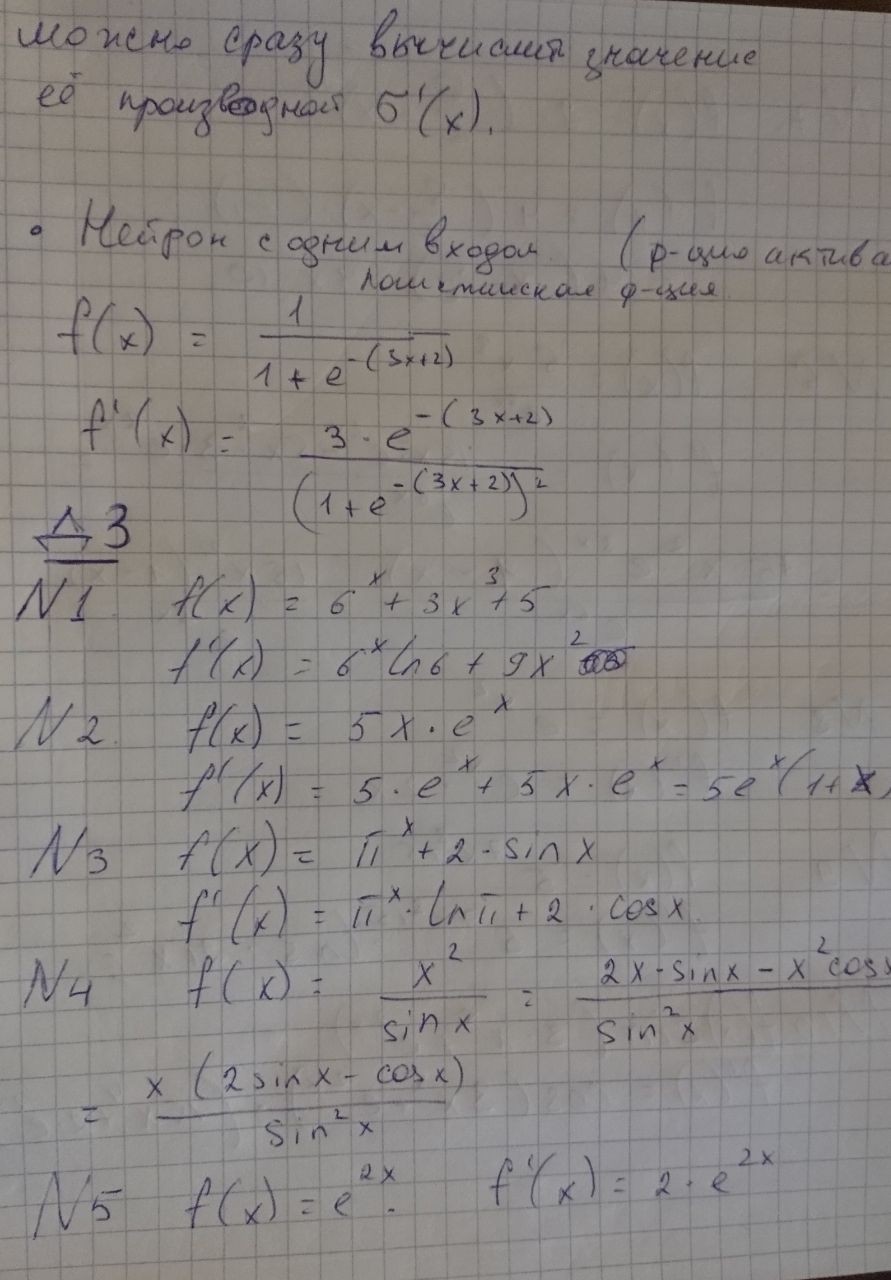 можно сразу вычислить значение
её производной σ'(x).
• Нейрон с одним входом (ф-цию актива
логистическая ф-ция
f(x) = 1 / (1 + e^-(3x+2))
f'(x) = 3 · e^-(3x+2) / (1 + e^-(3x+2))^2
3
N1 f(x) = 6^x + 3x^3 + 5
f'(x) = 6^x ln6 + 9x^2
N2. f(x) = 5x · e^x
f'(x) = 5 · e^x + 5x · e^x = 5e^x (1 + x)
N3 f(x) = π^x + 2 · sin x
f'(x) = π^x · ln π + 2 · cos x.
N4 f(x) = x^2 / sin x = (2x · sin x - x^2 cos x) / sin^2 x
= x (2 sin x - cos x) / sin^2 x
N5 f(x) = e^2x. f'(x) = 2 · e^2x